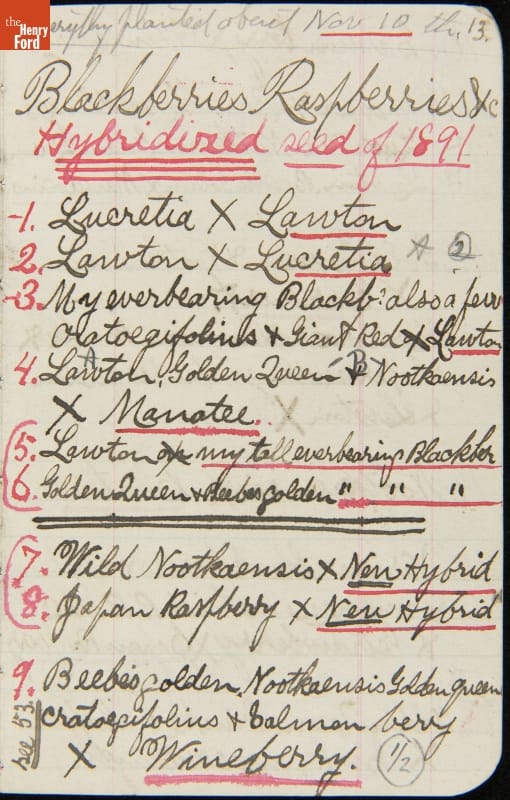 the
Henry
Ford
planted about Nov 10 th. 13.
Blackberries Raspberries &c
Hybridized seed of 1891
-1. Lucretia X Lawton
2. Lawton X Lucretia A 2
-3. My everbearing Blackb? also a few
Cratoegifolius & Giant Red X Lawton
4. Lawton, A Golden Queen & B Nootkaensis
X Manatee.
5. Lawton on my tall everbearing Blackber
6. Golden Queen & Beebes golden " " "
7. Wild Nootkaensis X New Hybrid
8. Japan Raspberry X New Hybrid
9. Beebes golden, Nootkaensis Golden queen
cratoegifolius & Salmon berry
see 53 X Wineberry. 1/2